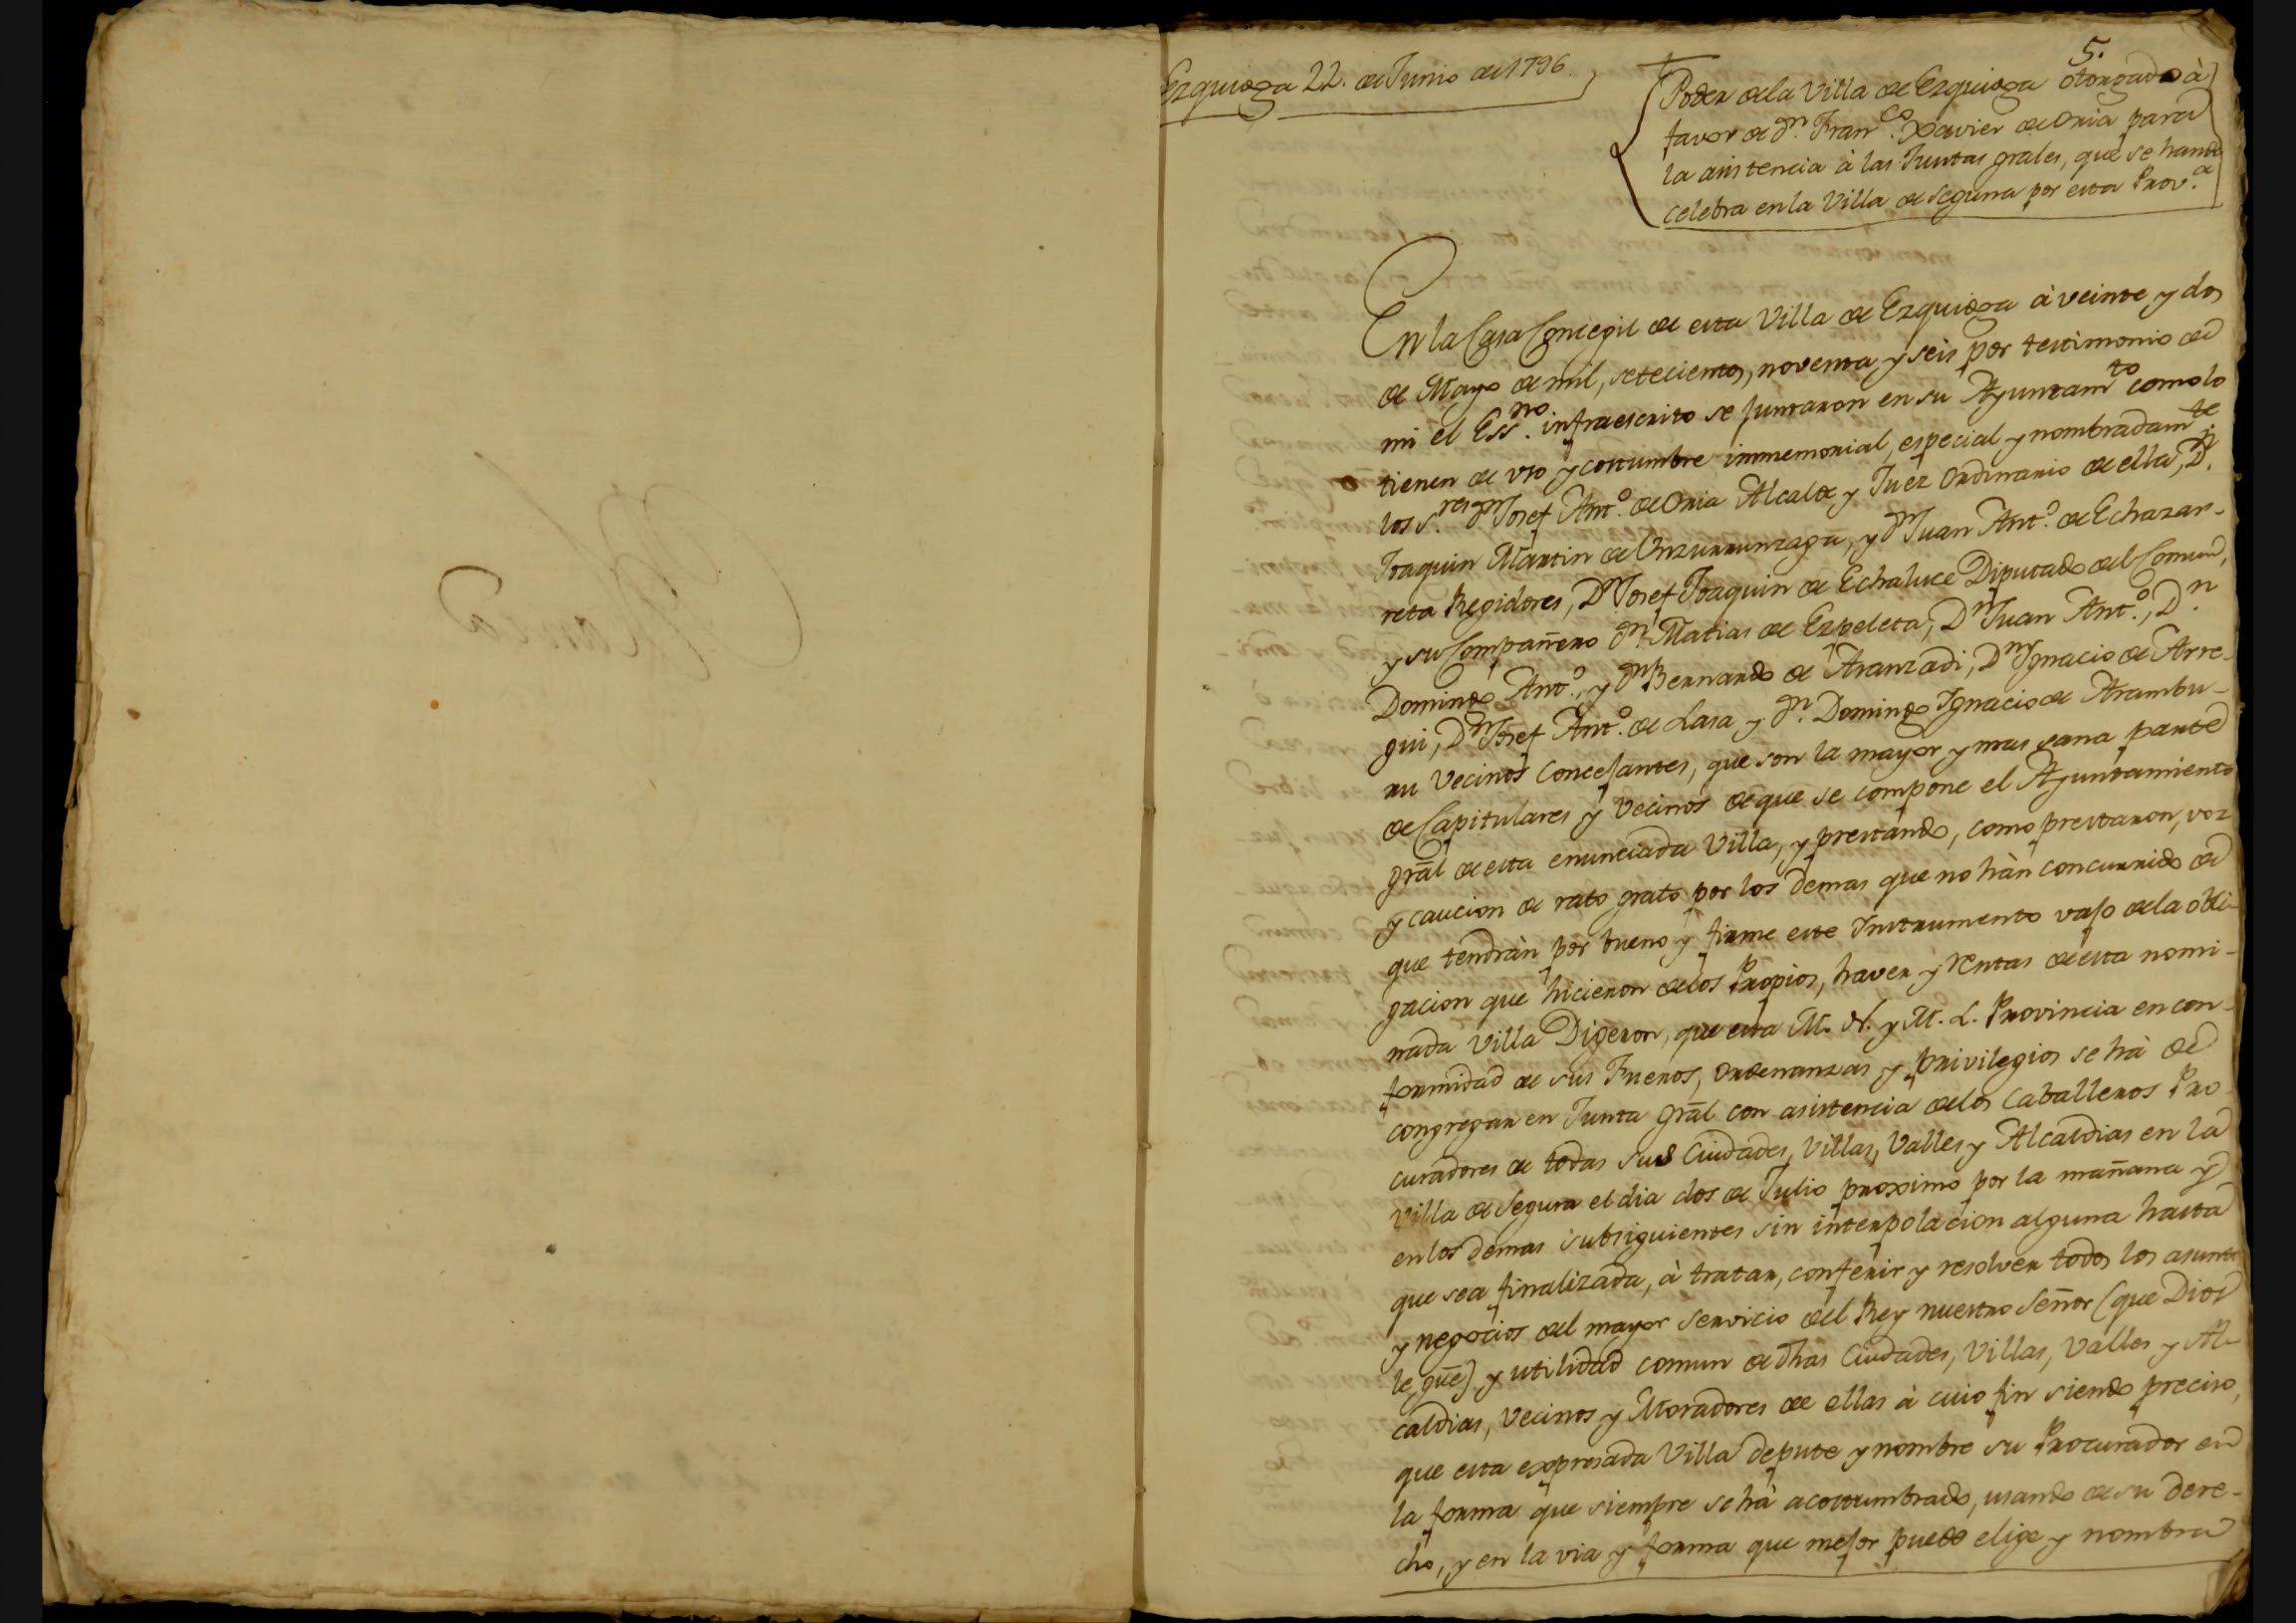 Ezquioga 22. de Junio de 1796.
5.
Poder de la Villa de Ezquioga otorgado à
favor de Dn. Franco. Xavier de Oria para
la asistencia à las Juntas grales, que se han de
celebra en la Villa de Segura por esta Prova.
En la Casa Concegil de esta Villa de Ezquioga à veinte y dos
de Mayo de mil, setecientos, noventa, y seis por testimonio de
mi el Essno. infraescrito se juntaron en su Ayuntamto como lo
tienen de vso y costumbre immemorial, especial y nombradamte.
los Sres. Dn Josef Anto. de Oria Alcalde y Juez Ordinario de ella, Dn.
Joaquin Martin de Unzurrunzaga, y Dn Juan Anto. de Echazar-
reta Regidores, Dn Josef Joaquin de Echaluce Diputado del Comun,
y su Compañero Dn. Matias de Ezpeleta, Dn Juan Anto., Dn.
Domingo Anto., y Dn Bernardo de Aranzadi, Dn Ygnacio de Arre-
gui, Dn Josef Anto. de Lasa y Dn. Domingo Ygnacio de Arambu-
ru Vecinos Concejantes, que son la mayor y mas sana parte
de Capitulares y Vecinos de que se compone el Ayuntamiento
grãl de esta enunciada Villa, y prestando, como prestaron, voz
y caucion de rato grato por los demas que no hàn concurrido de
que tendràn por bueno y firme este Instrumento vajo de la obli-
gacion que hicieron de los Propios, haver y rentas de esta nomi-
nada Villa Digeron, que esta M. N. y M. L. Provincia en con-
formidad de sus Fueros, Ordenanzas y privilegios se hà de
congregar en Junta Grãl con asistencia de los Caballeros Pro-
curadores de todas sus Ciudades, Villas, Valles y Alcaldias en la
Villa de Segura el dia dos de Julio proximo por la mañana y
en los demas subsiguientes sin interpolacion alguna hasta
que sea finalizada, à tratar, conferir y resolver todos los asuntos
y negocios del mayor servicio del Rey nuestro Señor (que Dios
le gũe) y utilidad comun de dhas Ciudades, Villas, Valles y Al-
caldias, Vecinos y Moradores de ellas à cuio fin siendo preciso,
que esta expresada Villa depute y nombre su Procurador en
la forma que siempre se hà acostumbrado, usando de su dere-
cho, y en la via y forma que mejor puede elige y nombra